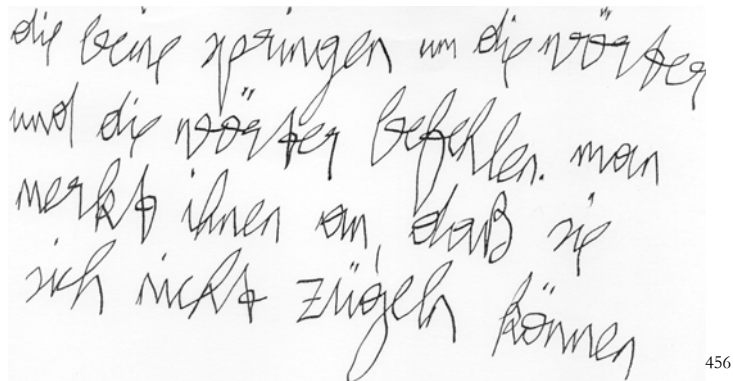 die beine springen um die wörter
und die wörter befehlen. man
merkt ihnen an, daß sie
sich nicht zügeln können
456